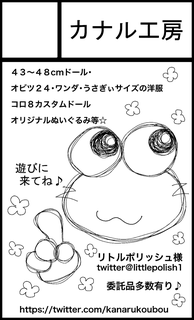 カナル工房
４３～４８cmドール・
オビツ２４・ワンダ・うさぎぃサイズの洋服
コロ８カスタムドール
オリジナルぬいぐるみ等☆
遊びに
来てね♪
リトルポリッシュ様
twitter@littlepolish1
委託品多数有り♪
https://twitter.com/kanarukoubou